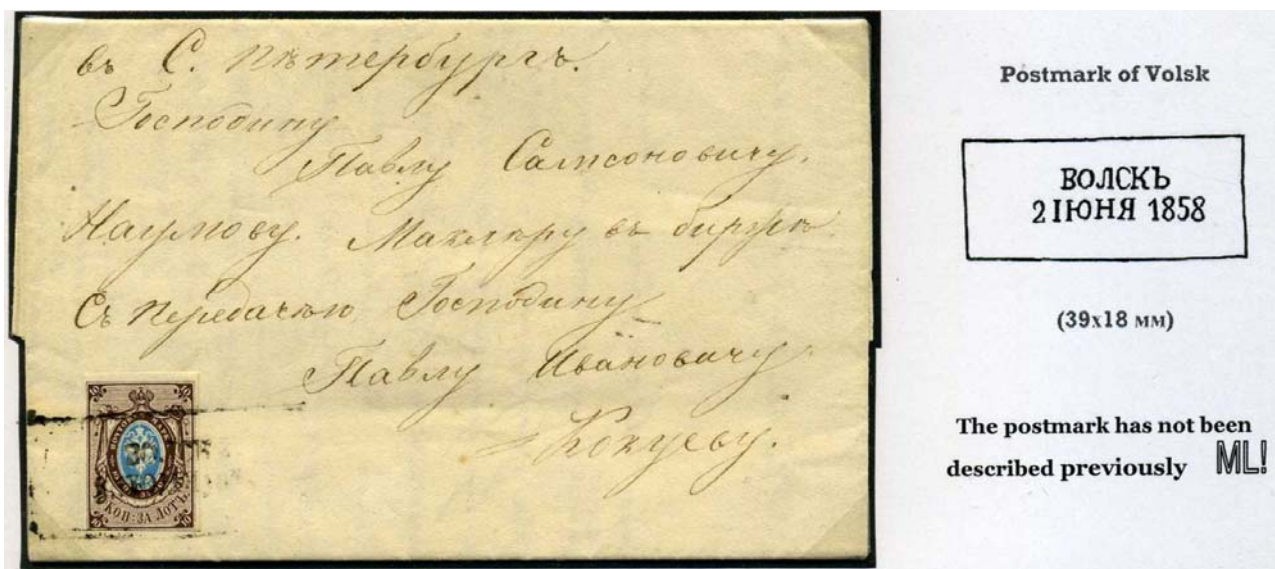 въ С. Пѣтербургъ.
Господину
Павлу Самсоновичу.
Наумову. Маклеру въ биржѣ.
Съ передачѣю Господину
Павлу Ивановичу
Кокуеву.
КОП: ЗА ЛОТЪ.
10 10
10 10
Postmark of Volsk
ВОЛСКЪ
2 ІЮНЯ 1858
(39х18 мм)
The postmark has not been
described previously ML!